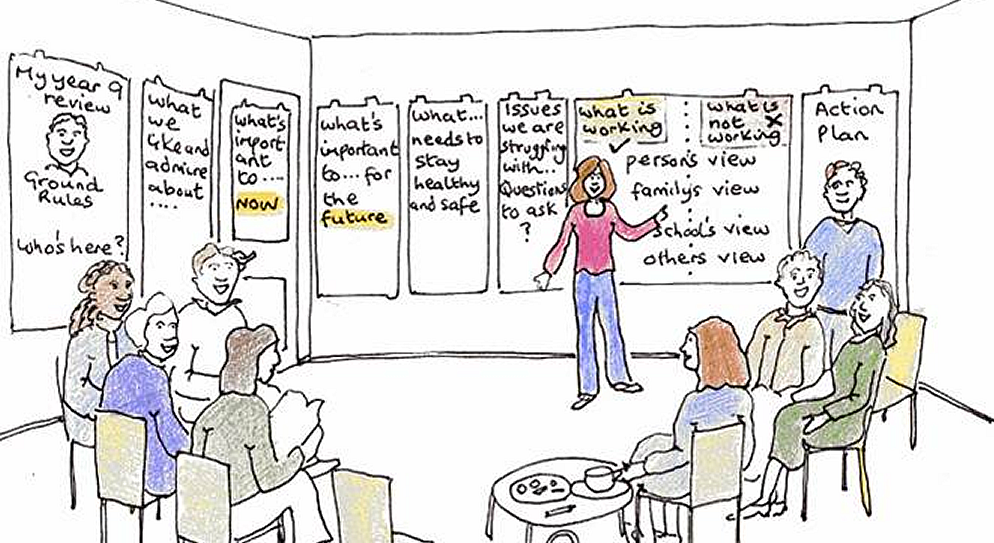 My year 9
review
Ground
Rules
who's here?
what
we
like and
admire
about
....
what's
import
ant
to ....
NOW
what's
important
to... for
the
future
what...
needs to
stay
healthy
and safe
Issues
we are
struggling
with...
Questions
to ask
?
what is
working
✓
what is
not
working
X
person's view
family's view
school's view
others view
Action
Plan